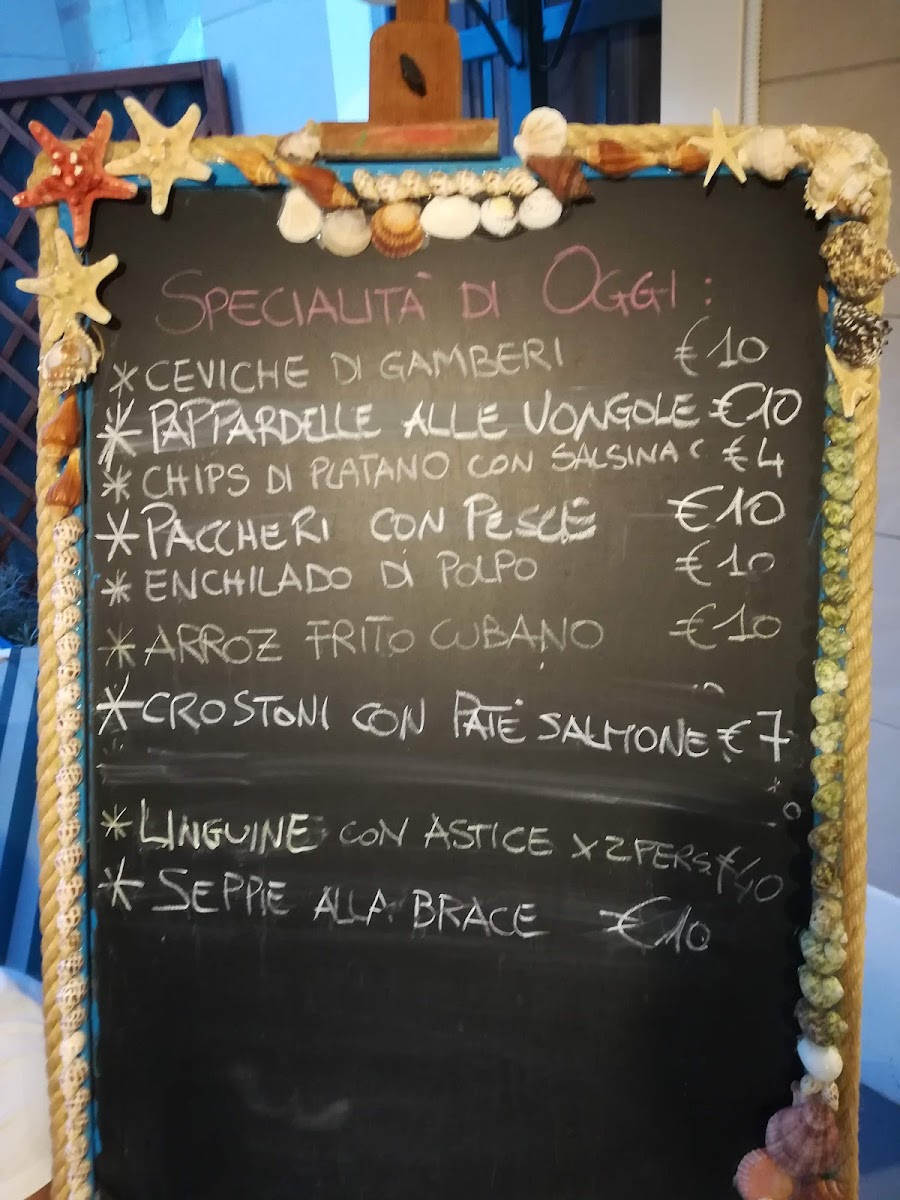 SPECIALITÀ DI OGGI :
* CEVICHE DI GAMBERI € 10
* PAPPARDELLE ALLE VONGOLE €10
* CHIPS DI PLATANO CON SALSINA € 4
* PACCHERI CON PESCE €10
* ENCHILADO DI POLPO €10
* ARROZ FRITO CUBANO €10
* CROSTONI CON PATÈ SALMONE € 7
* LINGUINE CON ASTICE X 2 PERS. €40
* SEPPIE ALLA BRACE €10